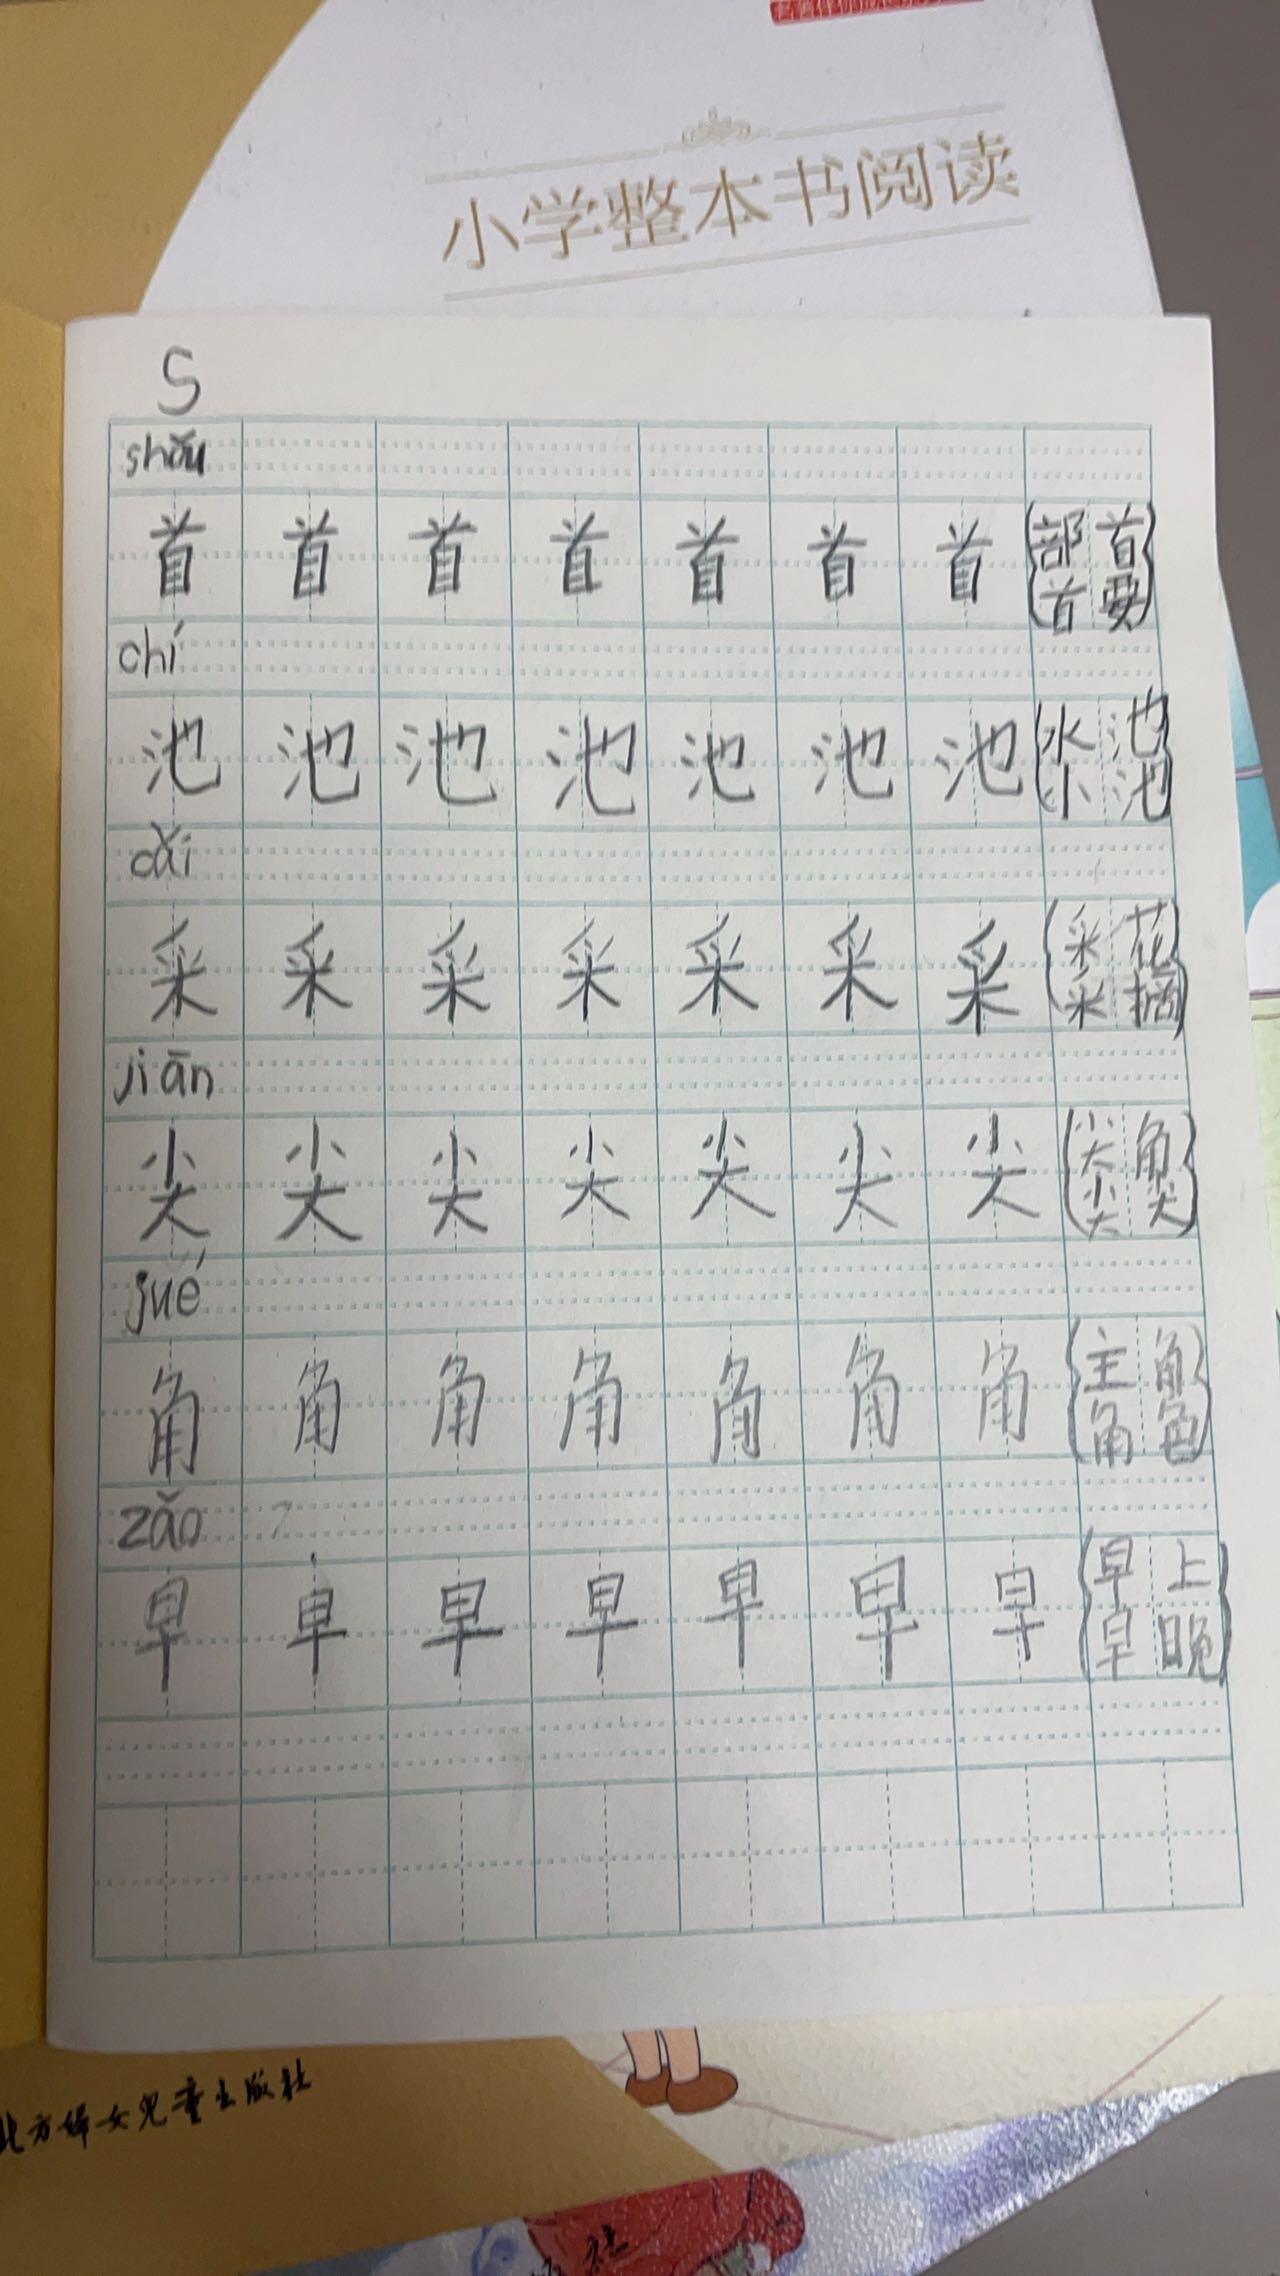 小学整本书阅读
S
shǒu
首 首 首 首 首 首 首 部首 首要
chí
池 池 池 池 池 池 池 水池 小池
cǎi
采 采 采 采 采 采 采 采花 采摘
jiān
尖 尖 尖 尖 尖 尖 尖 尖角 尖尖
jué
角 角 角 角 角 角 角 主角 角色
zǎo
早 早 早 早 早 早 早 早上 早晚
北方妇女儿童出版社